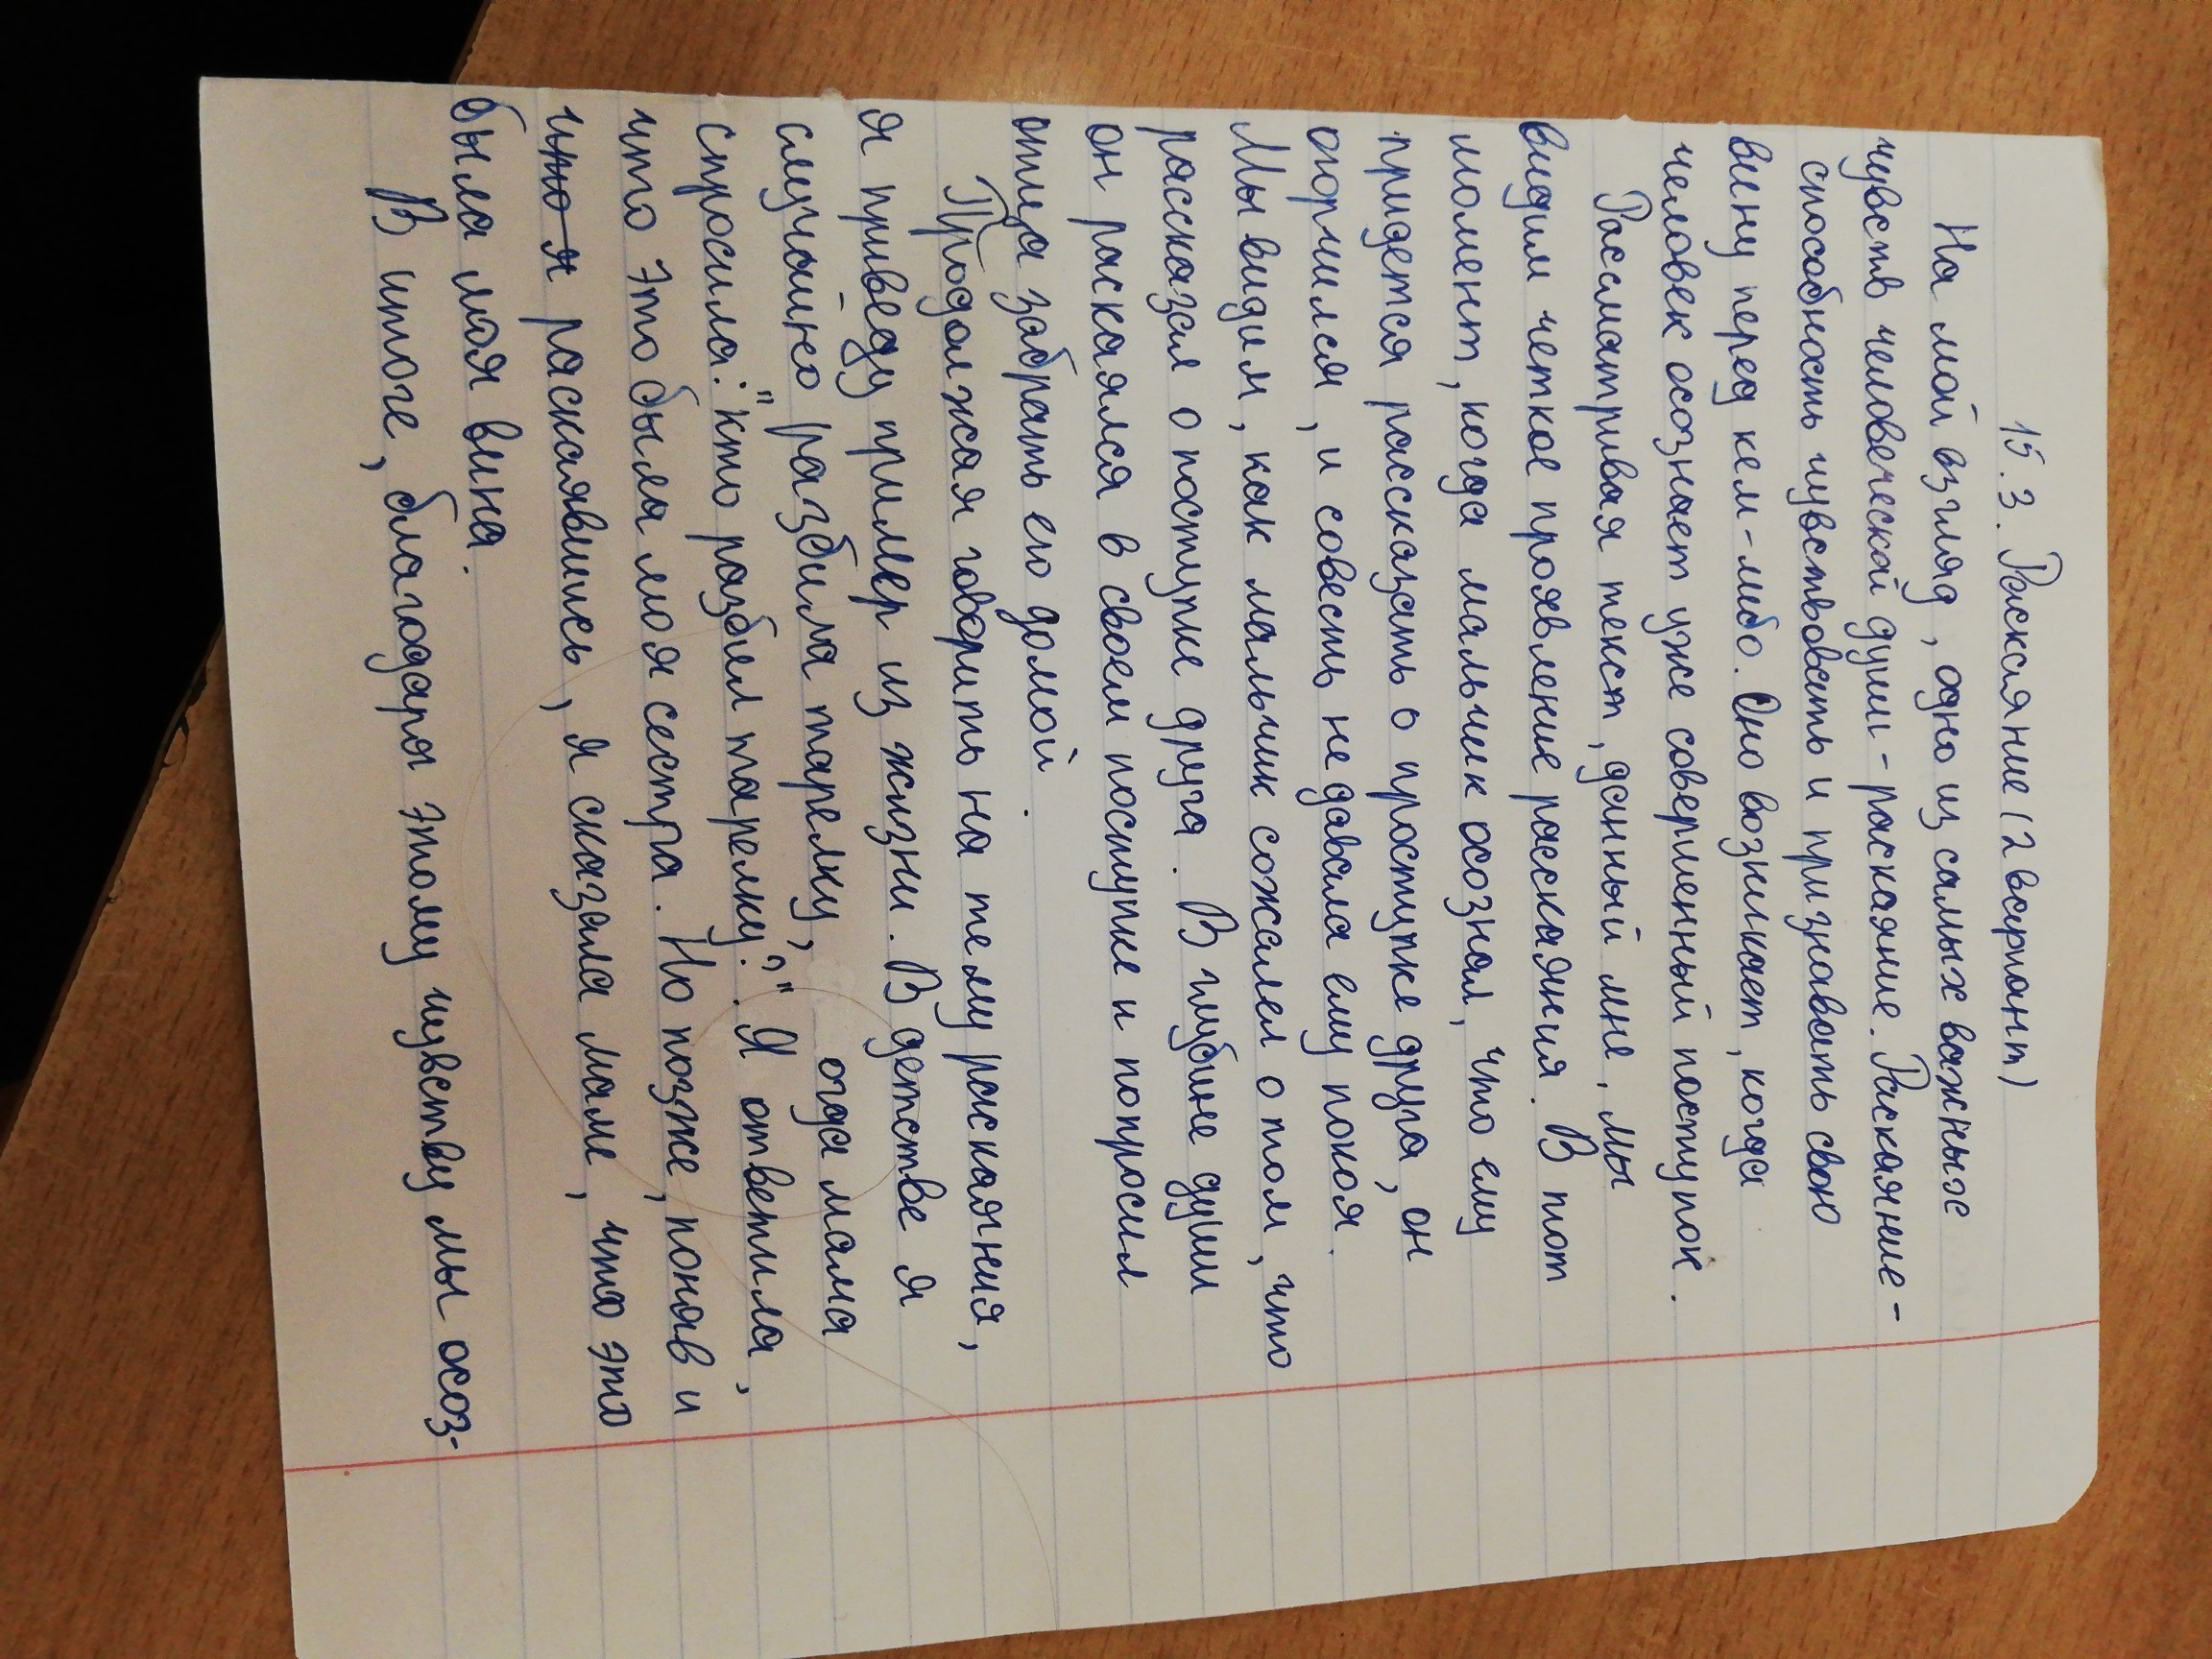 15.3. Раскаяние (2 вариант)
На мой взгляд, одно из самых важных
чувств человеческой души - раскаяние. Раскаяние -
способность чувствовать и признавать свою
вину перед кем-либо. Оно возникает, когда
человек осознает уже совершенный поступок.
Рассматривая текст, данный мне, мы
видим четкое проявление расскаяния. В тот
момент, когда мальчик осознал, что ему
придется рассказать о проступке друга, он
огорчился, и совесть не давала ему покоя.
Мы видим, как мальчик сожалел о том, что
рассказал о поступке друга. В глубине души
он раскаялся в своем поступке и попросил
отца забрать его домой.
Продолжая говорить на тему раскаяния,
я приведу пример из жизни. В детстве я
случайно разбила тарелку, огда мама
спросила: "кто разбил тарелку?" Я ответила,
что это была моя сестра. Но позже, поняв и
что я раскаявшись, я сказала маме, что это
была моя вина.
В итоге, благодаря этому чувству мы осоз-